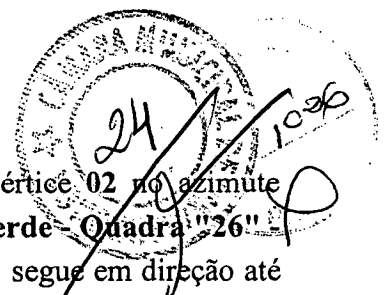 CÂMARA MUNICIPAL
24
1026
értice 02 no azimute
erde - Quadra "26" -
segue em direção até